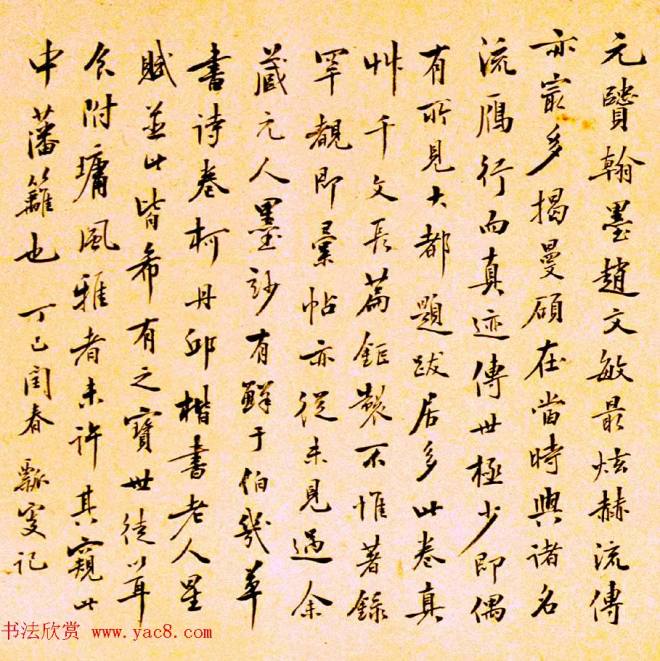 元贤翰墨趙文敏最炫赫流傳
亦㝡多揭曼碩在當時與諸名
流鴈行而真迹傳世極少即偶
有所見大都題跋居多此卷真
艸千文長篇鉅製不惟著錄
罕覩即彙帖亦從未見過余
藏元人墨妙有鮮于伯幾草
書詩卷柯丹邱楷書老人星
賦並此皆希有之寶世徒以耳
食附庸風雅者未許其窺此
中藩籬也 丁巳閏春 瓢叟記
书法欣赏 www.yac8.com